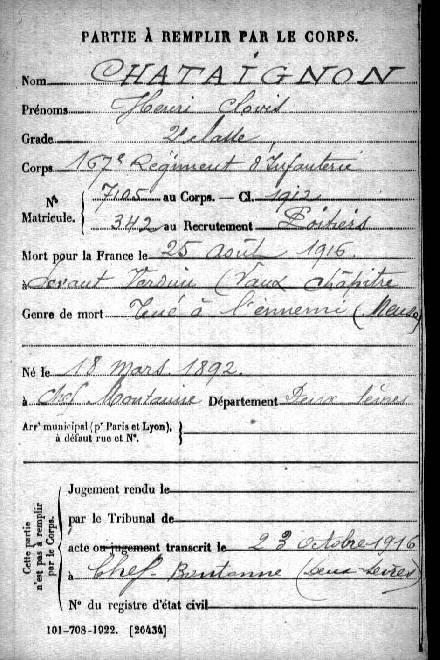 PARTIE À REMPLIR PAR LE CORPS.
Nom CHATAIGNON
Prénoms Henri Clovis
Grade 2e classe
Corps 167e Régiment d'Infanterie
N° 7105 au Corps. — Cl. 1912
Matricule. 342 au Recrutement Poitiers
Mort pour la France le 25 Août 1916.
à Devant Verdun (Vaux Chapitre
Genre de mort Tué à l'ennemi (Meuse)
Né le 18 Mars 1892.
à Chef Département Deux Sèvres
Arrt municipal (pr Paris et Lyon),
à défaut rue et N°.
Cette partie
n'est pas à remplir
par le Corps.
Jugement rendu le
par le Tribunal de
acte ou jugement transcrit le 23 Octobre 1916
à Chef-Boutonne (Deux-Sèvres)
N° du registre d'état civil
101-708-1922. [26434]